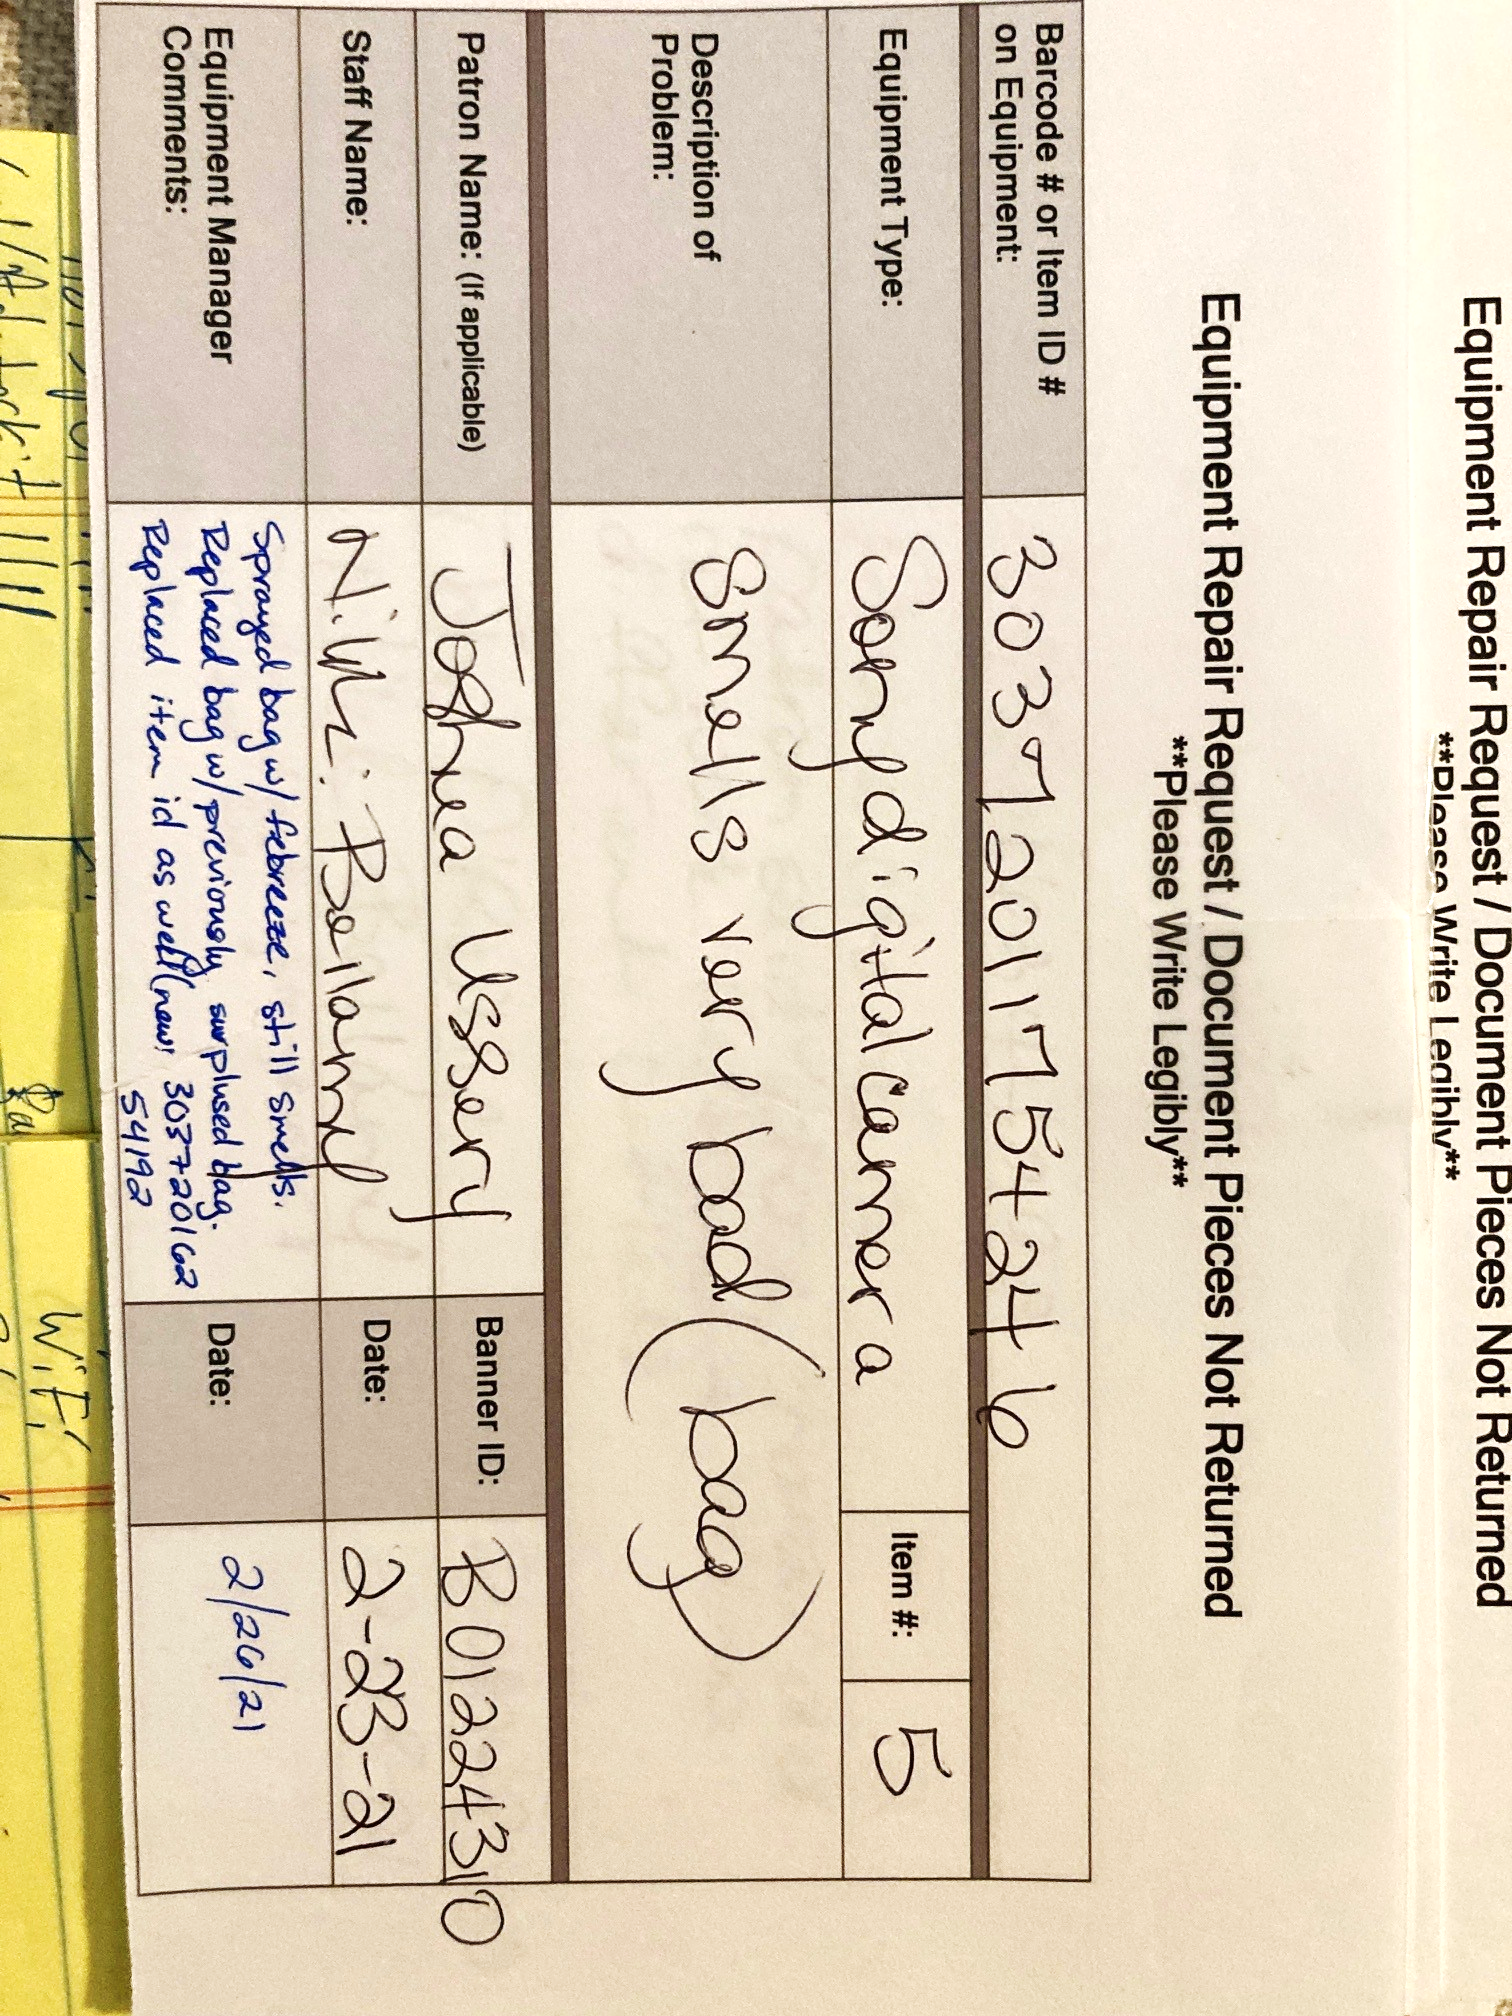 Equipment Repair Request / Document Pieces Not Returned
**Please Write Legibly**
Equipment Repair Request / Document Pieces Not Returned
**Please Write Legibly**
Barcode # or Item ID #
on Equipment:
30372011754246
Equipment Type:
Sony digital camera
Item #:
5
Description of
Problem:
Smells very bad (bag)
Patron Name: (If applicable)
Joshua Ussery
Banner ID:
B01224310
Staff Name:
Date:
2-23-21
Equipment Manager
Comments:
Sprayed bag w/ febreeze, still smells.
Replaced bag w/ previously surplused bag.
Replaced item id as well (new: 3037720162
54192
Date:
2/26/21
WiFi